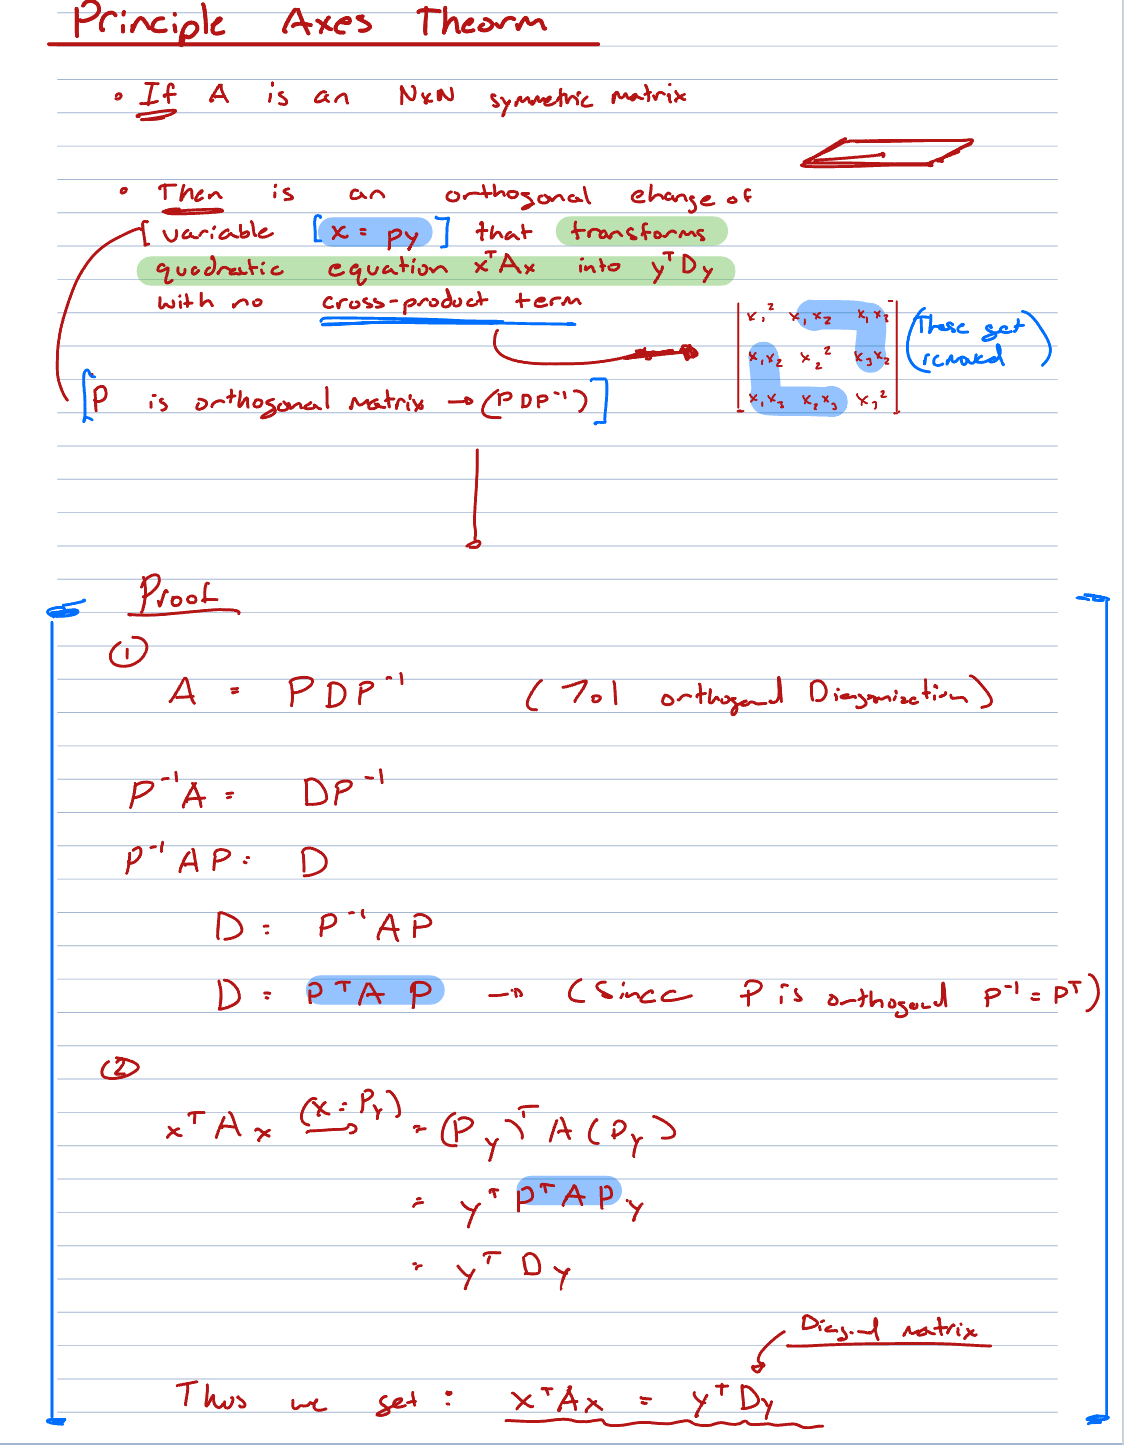 Principle Axes Theorm
• If A is an NxN symmetric matrix
• Then is an orthogonal change of
[ variable [x = py] that transforms
quadratic equation xᵀAx into yᵀDy
with no cross-product term
x₁² x₁x₂ x₁x₃
x₁x₂ x₂² x₃x₂
x₁x₃ x₂x₃ x₃²
(These get removed)
[P is orthogonal matrix → (PDP⁻¹)]
Proof
①
A = PDP⁻¹ (7.1 orthogonal Diagonization)
P⁻¹A = DP⁻¹
P⁻¹AP = D
D = P⁻¹AP
D = PᵀAP → (Since P is orthogonal P⁻¹ = Pᵀ)
②
xᵀAx (x = Py) → = (Py)ᵀA(Py)
= yᵀPᵀAPy
= yᵀDy
Diagonal matrix
Thus we get : xᵀAx = yᵀDy